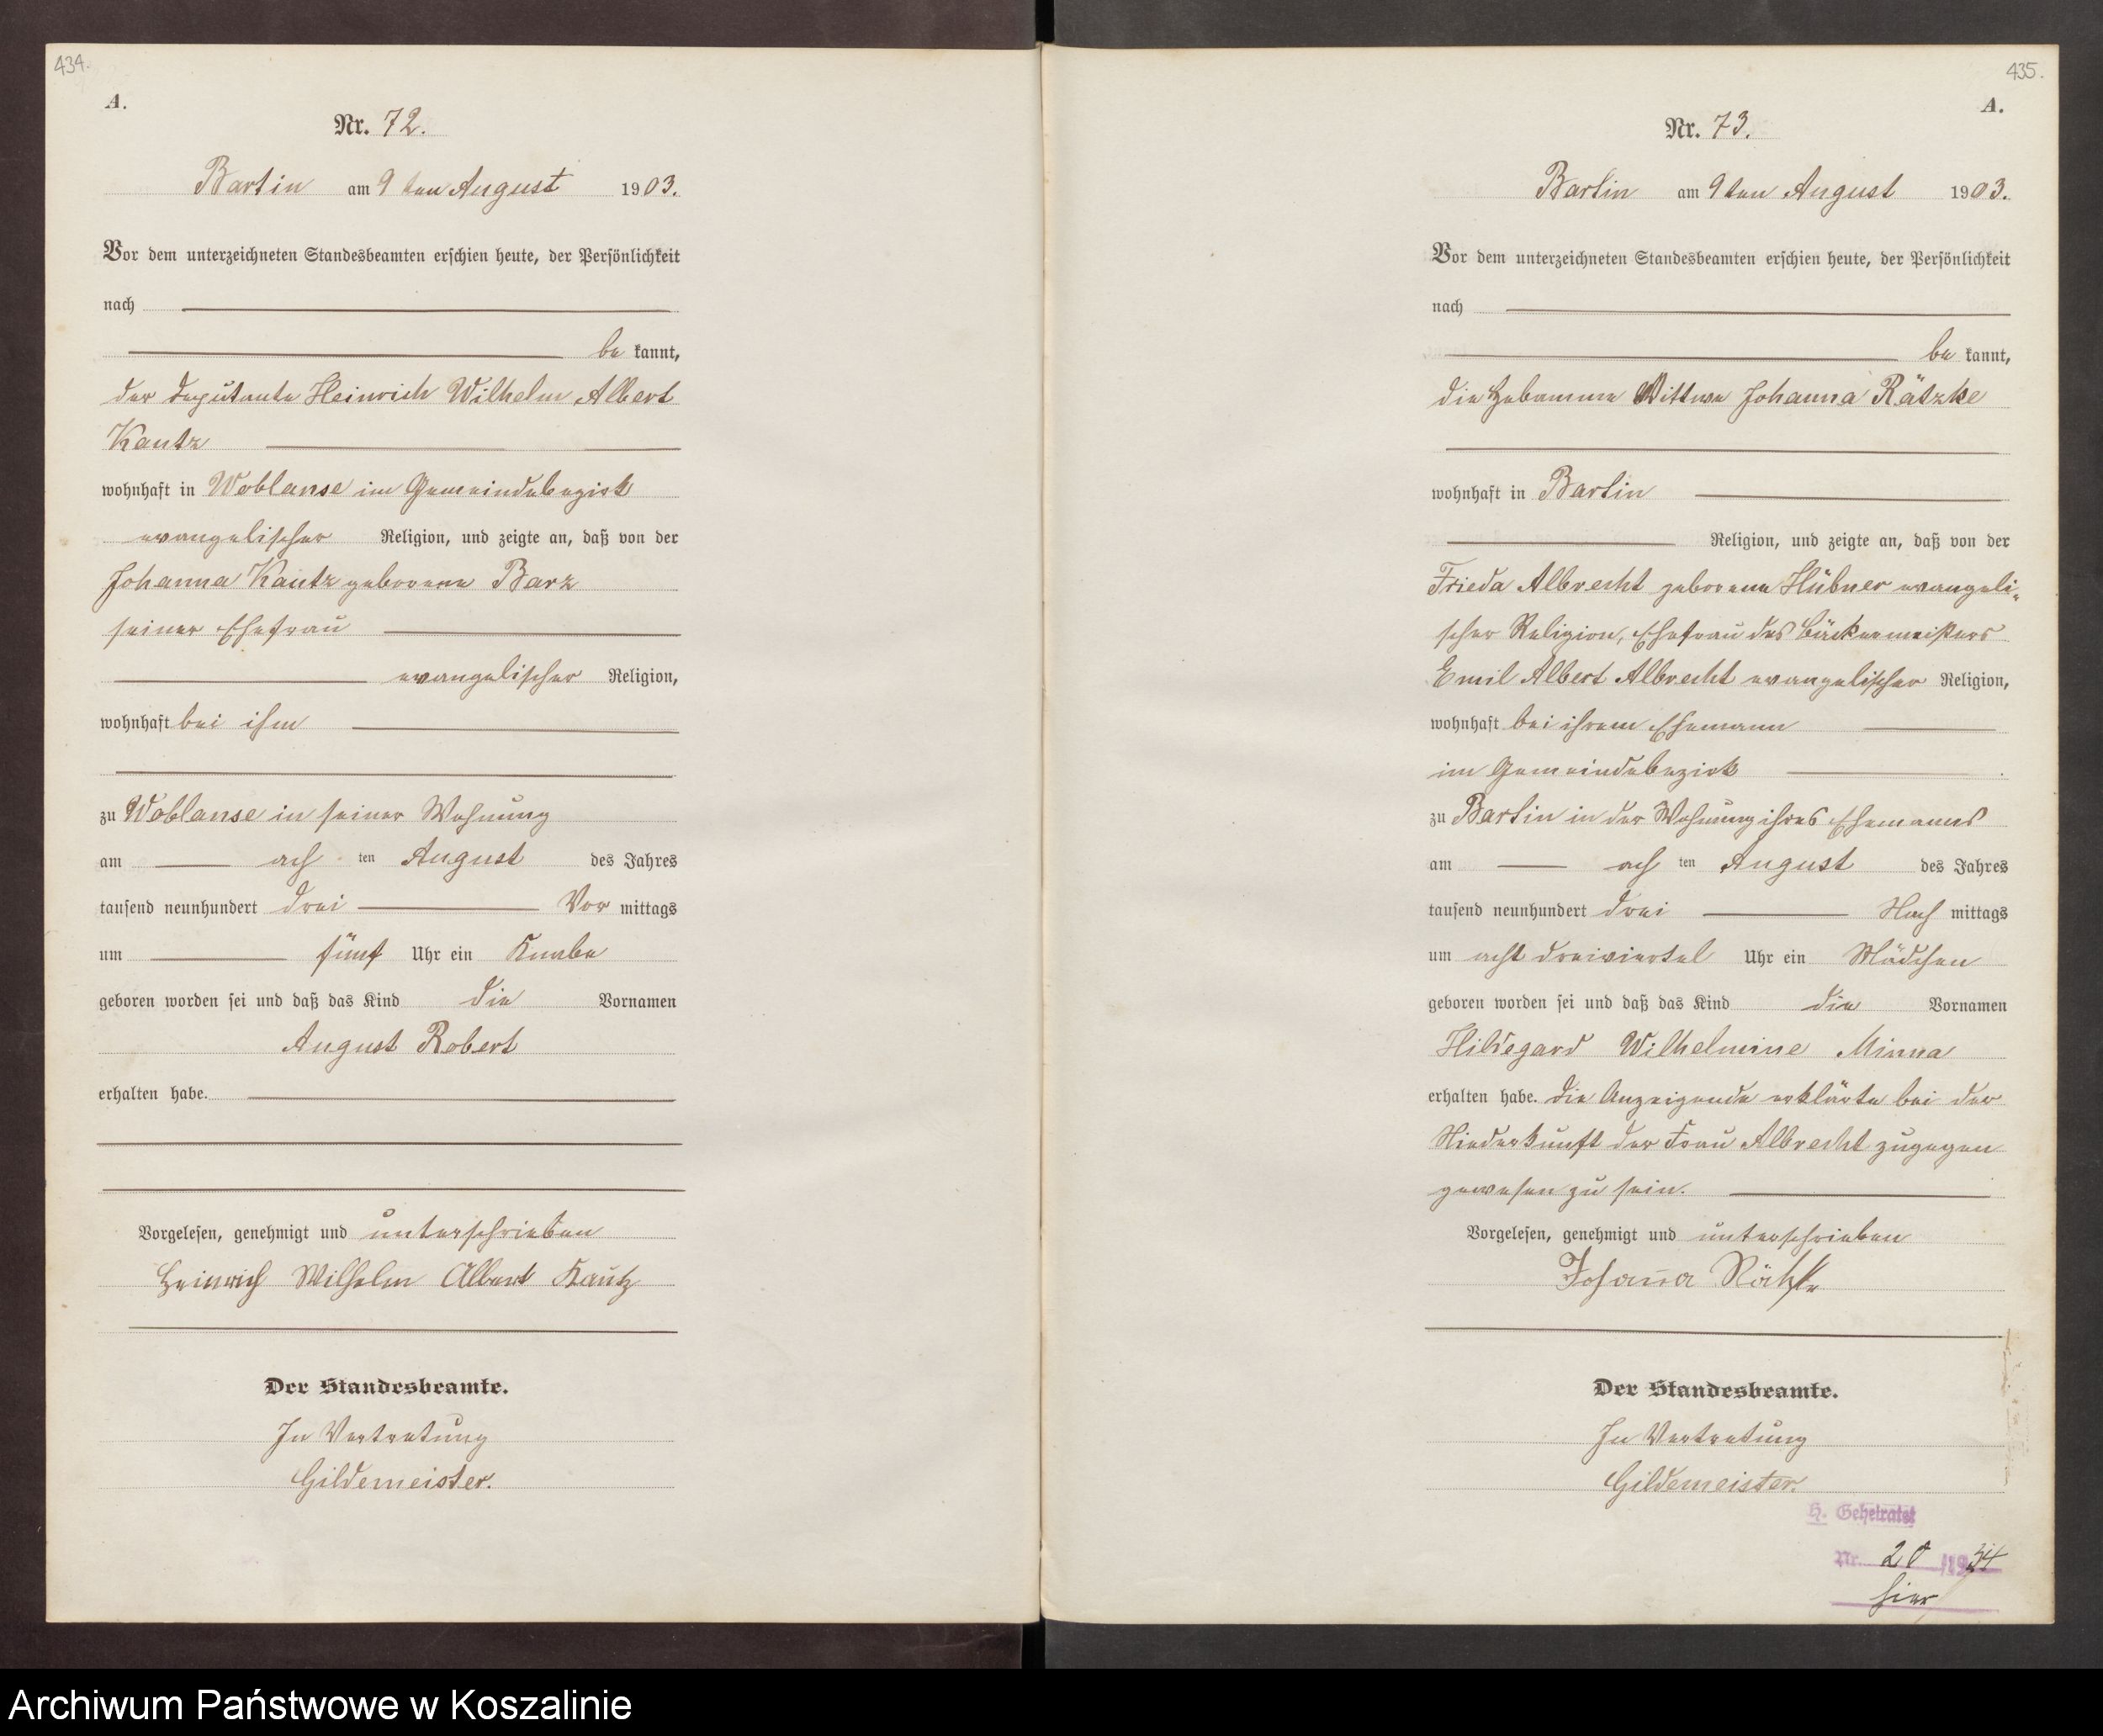 434.
A.
Nr. 72.
Bartin am 9ten August 1903.
Vor dem unterzeichneten Standesbeamten erschien heute, der Persönlichkeit
nach
be kannt,
der Deputante Heinrich Wilhelm Albert
Kautz
wohnhaft in Woblanse im Gemeindebezirk
evangelischer Religion, und zeigte an, daß von der
Johanna Kautz geborene Barz
seiner Ehefrau
evangelischer Religion,
wohnhaft bei ihm
zu Woblanse in seiner Wohnung
am ach ten August des Jahres
tausend neunhundert drei Vor mittags
um fünf Uhr ein Knabe
geboren worden sei und daß das Kind die Vornamen
August Robert
erhalten habe.
Vorgelesen, genehmigt und unterschrieben
Heinrich Wilhelm Albert Kautz
Der Standesbeamte.
In Vertretung
Gildemeister.
435.
A.
Nr. 73.
Bartin am 9ten August 1903.
Vor dem unterzeichneten Standesbeamten erschien heute, der Persönlichkeit
nach
be kannt,
die Hebamme Wittwe Johanna Rätzke
wohnhaft in Bartin
Religion, und zeigte an, daß von der
Frieda Albrecht geborene Hübner evangeli-
scher Religion, Ehefrau des Bäckermeisters
Emil Albert Albrecht evangelischer Religion,
wohnhaft bei ihrem Ehemann
im Gemeindebezirk
zu Bartin in der Wohnung ihres Ehemanns
am ach ten August des Jahres
tausend neunhundert drei Nach mittags
um acht dreiviertel Uhr ein Mädchen
geboren worden sei und daß das Kind die Vornamen
Hildegard Wilhelmine Minna
erhalten habe. Die Anzeigende erklärte bei der
Niederkunft der Frau Albrecht zugegen
gewesen zu sein.
Vorgelesen, genehmigt und unterschrieben
Johanna Rätzke
Der Standesbeamte.
In Vertretung
Gildemeister.
H. Geheiratet
Nr. 20 /1934
hier
Archiwum Państwowe w Koszalinie